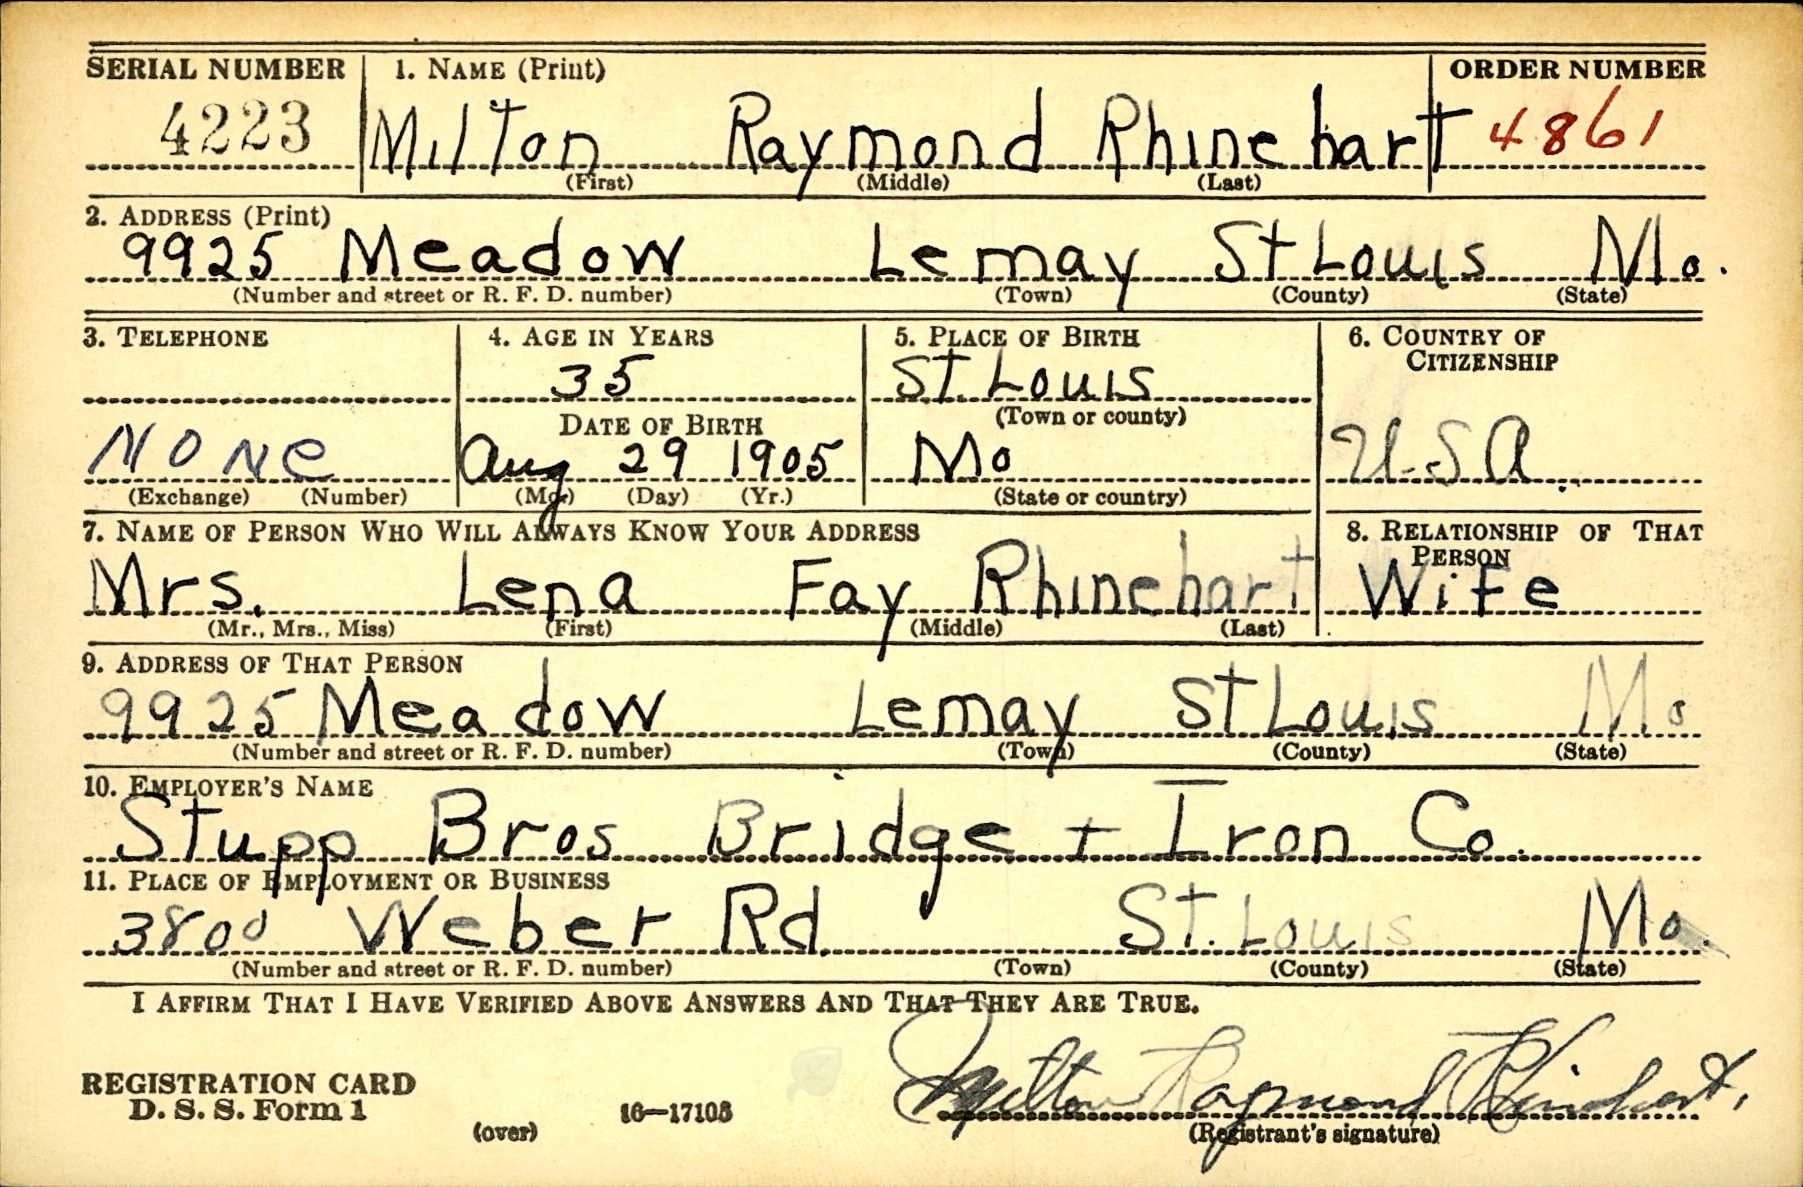 SERIAL NUMBER 1. NAME (Print) ORDER NUMBER
4223 Milton Raymond Rhinehart 4861
(First) (Middle) (Last)
2. ADDRESS (Print)
9925 Meadow Lemay St Louis Mo.
(Number and street or R. F. D. number) (Town) (County) (State)
3. TELEPHONE 4. AGE IN YEARS 5. PLACE OF BIRTH 6. COUNTRY OF
CITIZENSHIP
35 St. Louis
DATE OF BIRTH (Town or county)
None Aug 29 1905 Mo U.S.A.
(Exchange) (Number) (Mo.) (Day) (Yr.) (State or country)
7. NAME OF PERSON WHO WILL ALWAYS KNOW YOUR ADDRESS 8. RELATIONSHIP OF THAT
PERSON
Mrs. Lena Fay Rhinehart Wife
(Mr., Mrs., Miss) (First) (Middle) (Last)
9. ADDRESS OF THAT PERSON
9925 Meadow Lemay St Louis Mo
(Number and street or R. F. D. number) (Town) (County) (State)
10. EMPLOYER'S NAME
Stupp Bros Bridge + Iron Co.
11. PLACE OF EMPLOYMENT OR BUSINESS
3800 Weber Rd St. Louis Mo.
(Number and street or R. F. D. number) (Town) (County) (State)
I AFFIRM THAT I HAVE VERIFIED ABOVE ANSWERS AND THAT THEY ARE TRUE.
REGISTRATION CARD
D. S. S. Form 1 16—17103 Milton Raymond Rhinehart.
(over) (Registrant's signature)